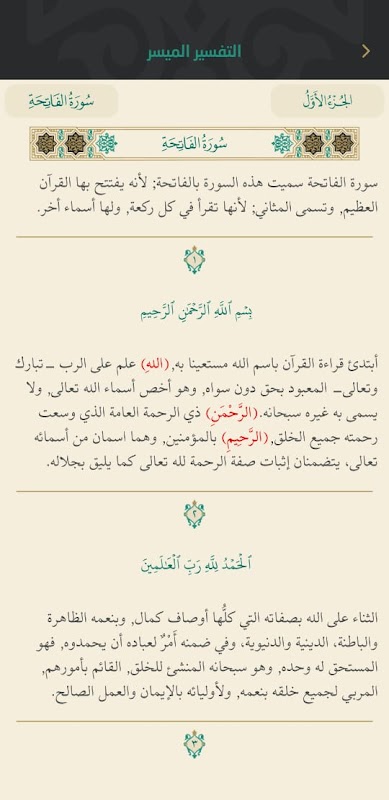 التفسير الميسر
الجُزْءُ الأَوَّلُ
سُورَةُ الفَاتِحَةِ
سُورَةُ الفَاتِحَةِ
سورة الفاتحة سميت هذه السورة بالفاتحة; لأنه يفتتح بها القرآن
العظيم, وتسمى المثاني; لأنها تقرأ في كل ركعة, ولها أسماء أخر.
١
بِسْمِ ٱللَّهِ ٱلرَّحْمَٰنِ ٱلرَّحِيمِ
أبتدئ قراءة القرآن باسم الله مستعينا به, (اللهِ) علم على الرب -تبارك
وتعالى- المعبود بحق دون سواه, وهو أخص أسماء الله تعالى, ولا
يسمى به غيره سبحانه. (الرَّحْمَنِ) ذي الرحمة العامة الذي وسعت
رحمته جميع الخلق, (الرَّحِيمِ) بالمؤمنين, وهما اسمان من أسمائه
تعالى، يتضمنان إثبات صفة الرحمة لله تعالى كما يليق بجلاله.
٢
ٱلْحَمْدُ لِلَّهِ رَبِّ ٱلْعَٰلَمِينَ
الثناء على الله بصفاته التي كلُّها أوصاف كمال, وبنعمه الظاهرة
والباطنة، الدينية والدنيوية، وفي ضمنه أَمْرٌ لعباده أن يحمدوه, فهو
المستحق له وحده, وهو سبحانه المنشئ للخلق, القائم بأمورهم,
المربي لجميع خلقه بنعمه, ولأوليائه بالإيمان والعمل الصالح.
٣